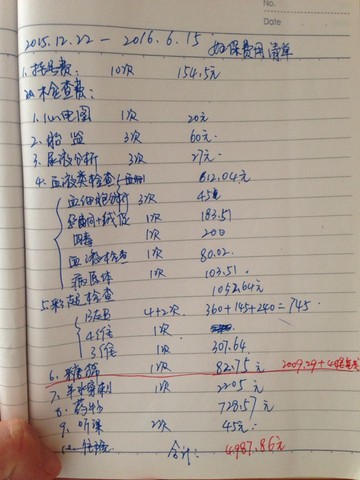 No.
Date
2015.12.22 — 2016.6.15 妇保费用清单
1. 挂号费: 10次 154.5元
2. 检查费:
1. 心电图 1次 20元
2. 胎监 3次 60元
3. 尿液分析 3次 27元
4. 血液类检查 612.04元
血细胞分析 3次 45元
1次 183.51
1次 200
血凝检查 1次 80.02
1次 103.51
5. 彩超检查 1052.64元
4+2次 360+145+240=745
4维 1次
3维 1次 307.64
6. 糖筛 1次 82.75元 2009.29+
7. 羊水穿刺 1次 2205元
8. 药物 728.57元
9. 听课 2次 45元
合计: 4987.86元